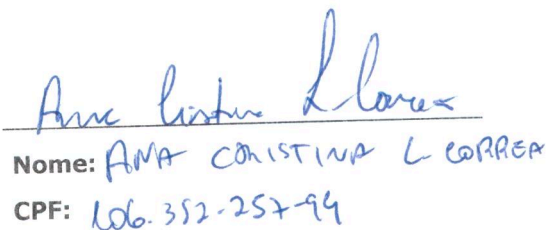 Ana Cristina L Correa
Nome: ANA CRISTINA L CORREA
CPF: 106.352-257-94